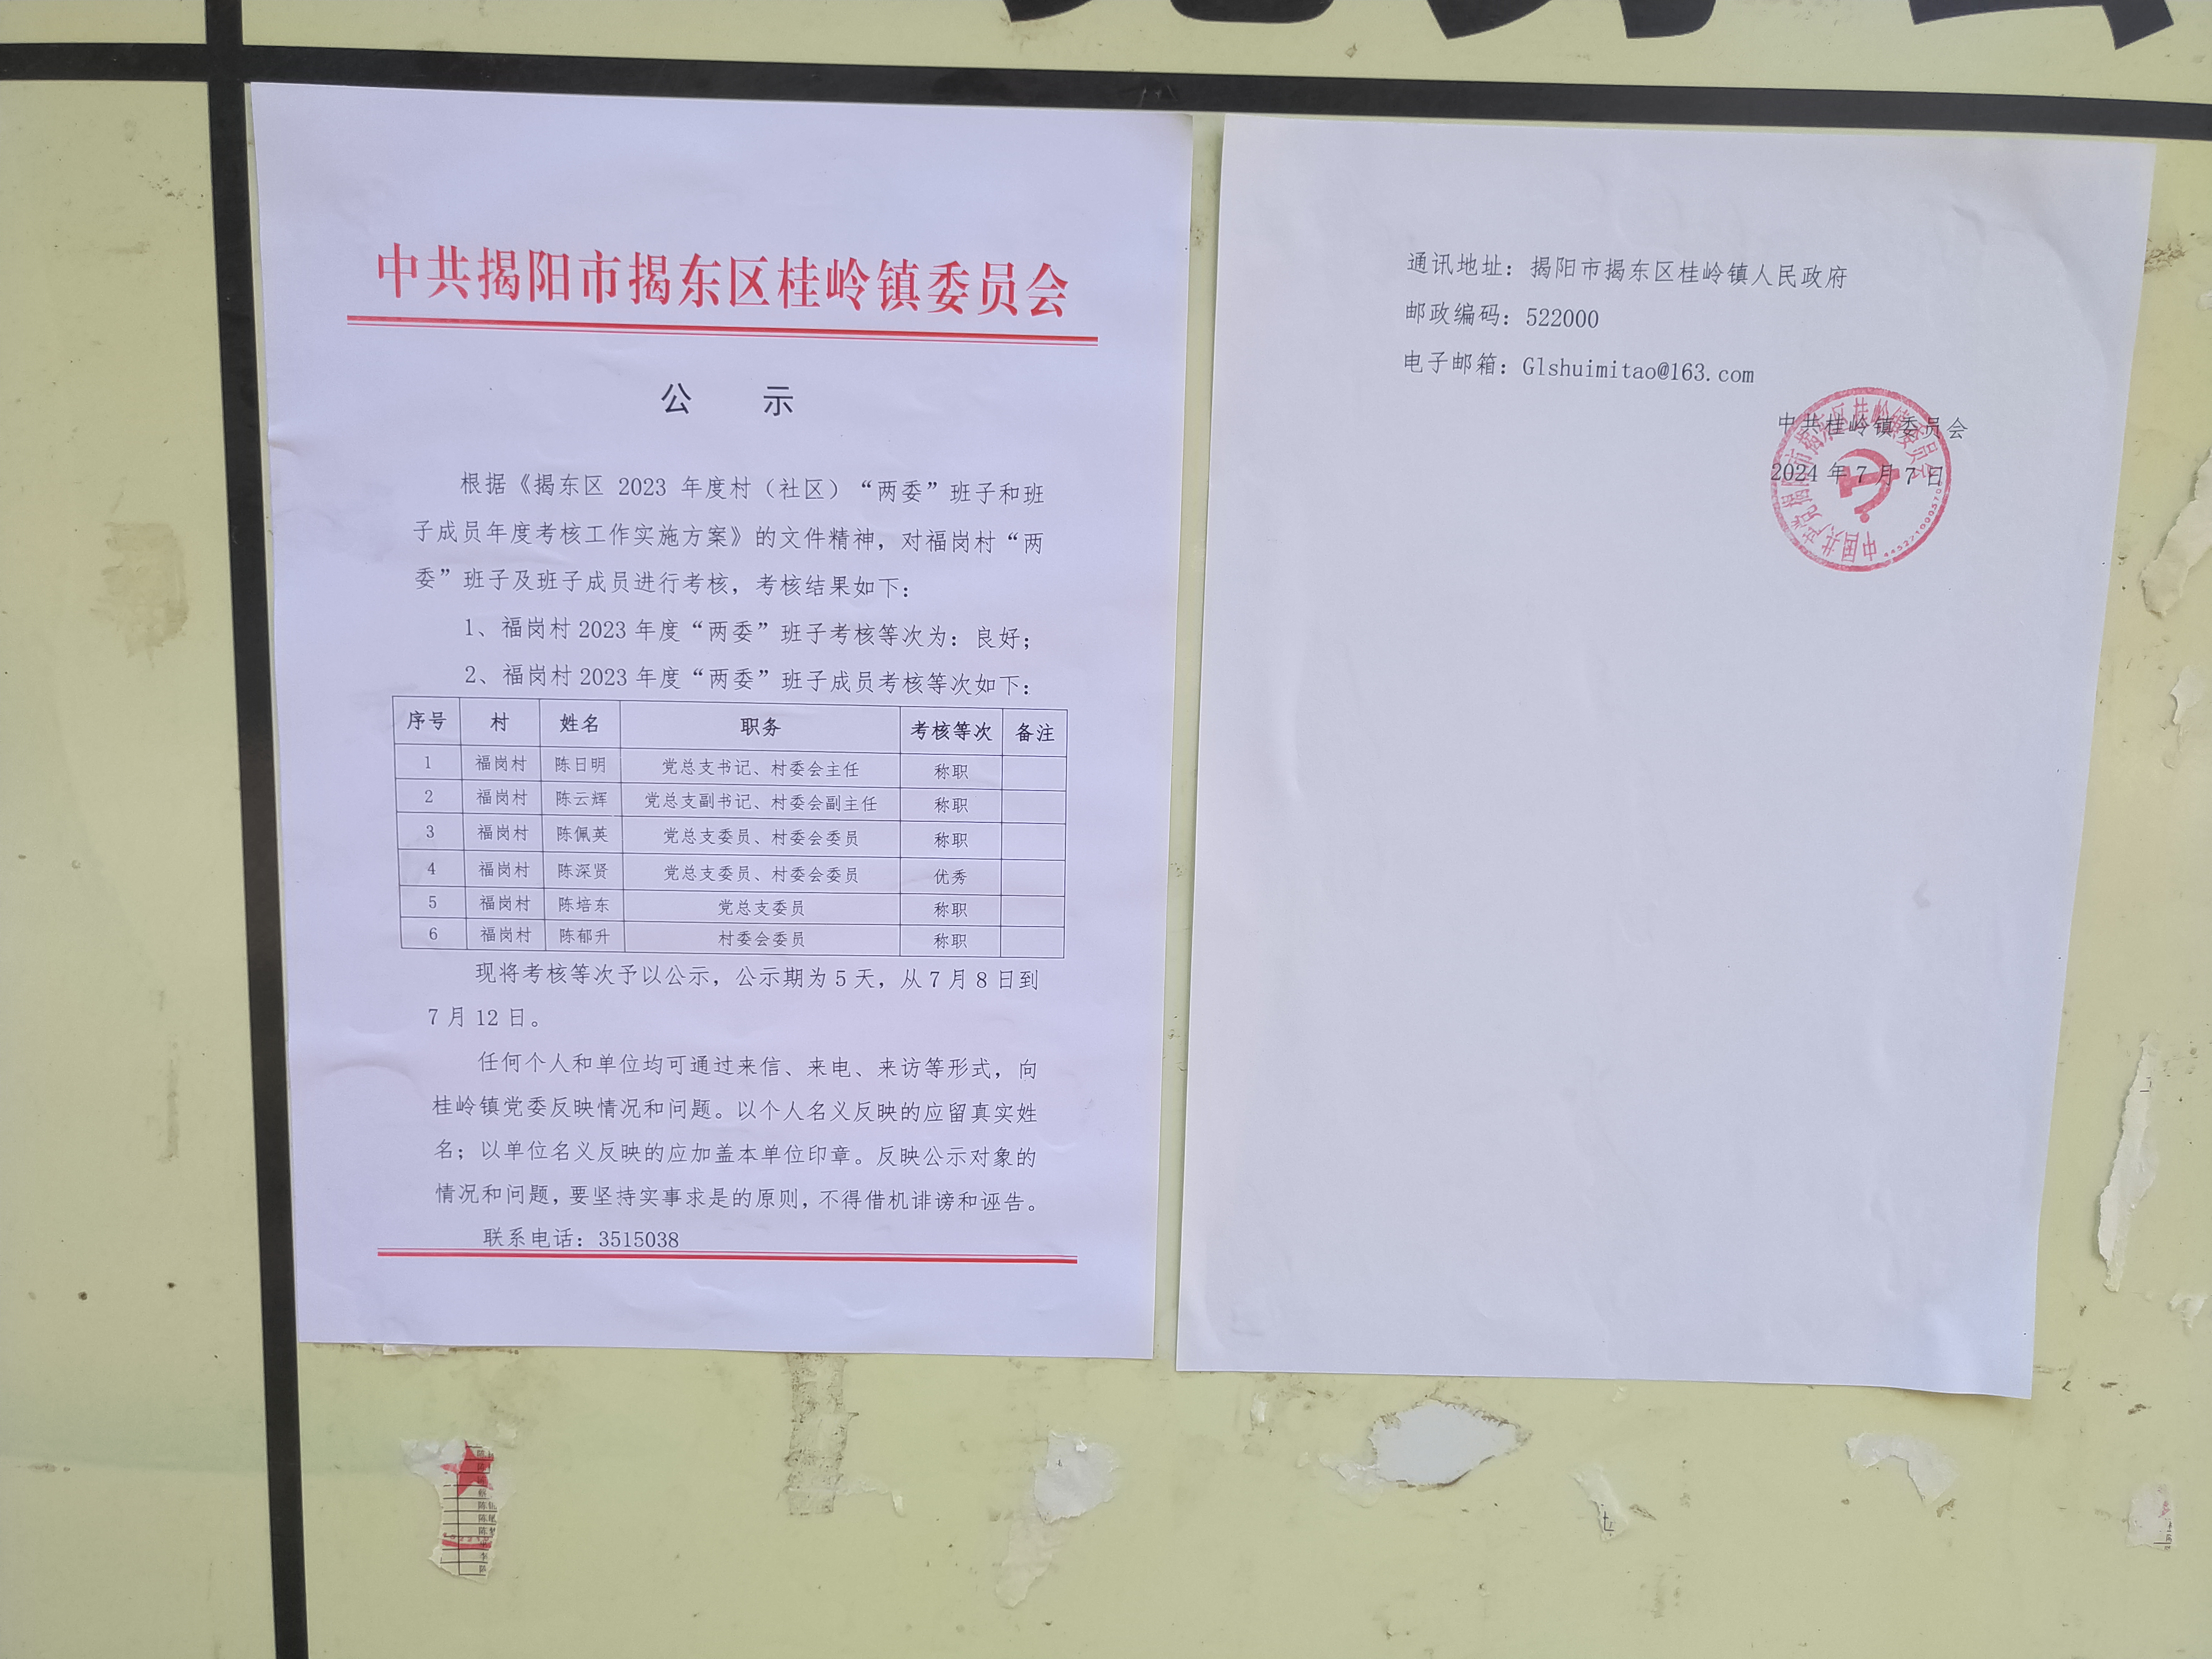 中共揭阳市揭东区桂岭镇委员会
公 示
根据《揭东区 2023 年度村（社区）“两委”班子和班
子成员年度考核工作实施方案》的文件精神，对福岗村“两
委”班子及班子成员进行考核，考核结果如下：
1、福岗村 2023 年度“两委”班子考核等次为：良好；
2、福岗村 2023 年度“两委”班子成员考核等次如下：
序号 村 姓名 职务 考核等次 备注
1 福岗村 陈日明 党总支书记、村委会主任 称职
2 福岗村 陈云辉 党总支副书记、村委会副主任 称职
3 福岗村 陈佩英 党总支委员、村委会委员 称职
4 福岗村 陈深贤 党总支委员、村委会委员 优秀
5 福岗村 陈培东 党总支委员 称职
6 福岗村 陈郁升 村委会委员 称职
现将考核等次予以公示，公示期为 5 天，从 7 月 8 日到
7 月 12 日。
任何个人和单位均可通过来信、来电、来访等形式，向
桂岭镇党委反映情况和问题。以个人名义反映的应留真实姓
名；以单位名义反映的应加盖本单位印章。反映公示对象的
情况和问题，要坚持实事求是的原则，不得借机诽谤和诬告。
联系电话：3515038
通讯地址：揭阳市揭东区桂岭镇人民政府
邮政编码：522000
电子邮箱：Glshuimitao@163.com
中共桂岭镇委员会
2024 年 7 月 7 日
中国共产党揭阳市揭东区桂岭镇委员会